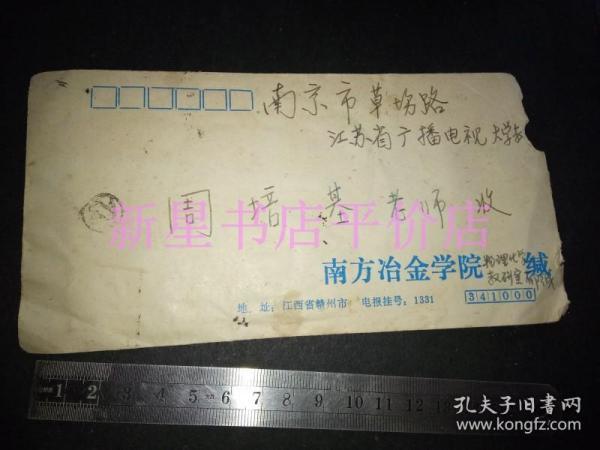 南京市草场路
江苏省广播电视大学
周培基老师收
新星书店平价店
南方冶金学院
物理化学
教研室
缄
地 址：江西省赣州市 电报挂号：1331
341000
1 2 3 4 5 6 7 8 9 10 11 12
孔夫子旧书网
www.kongfz.com